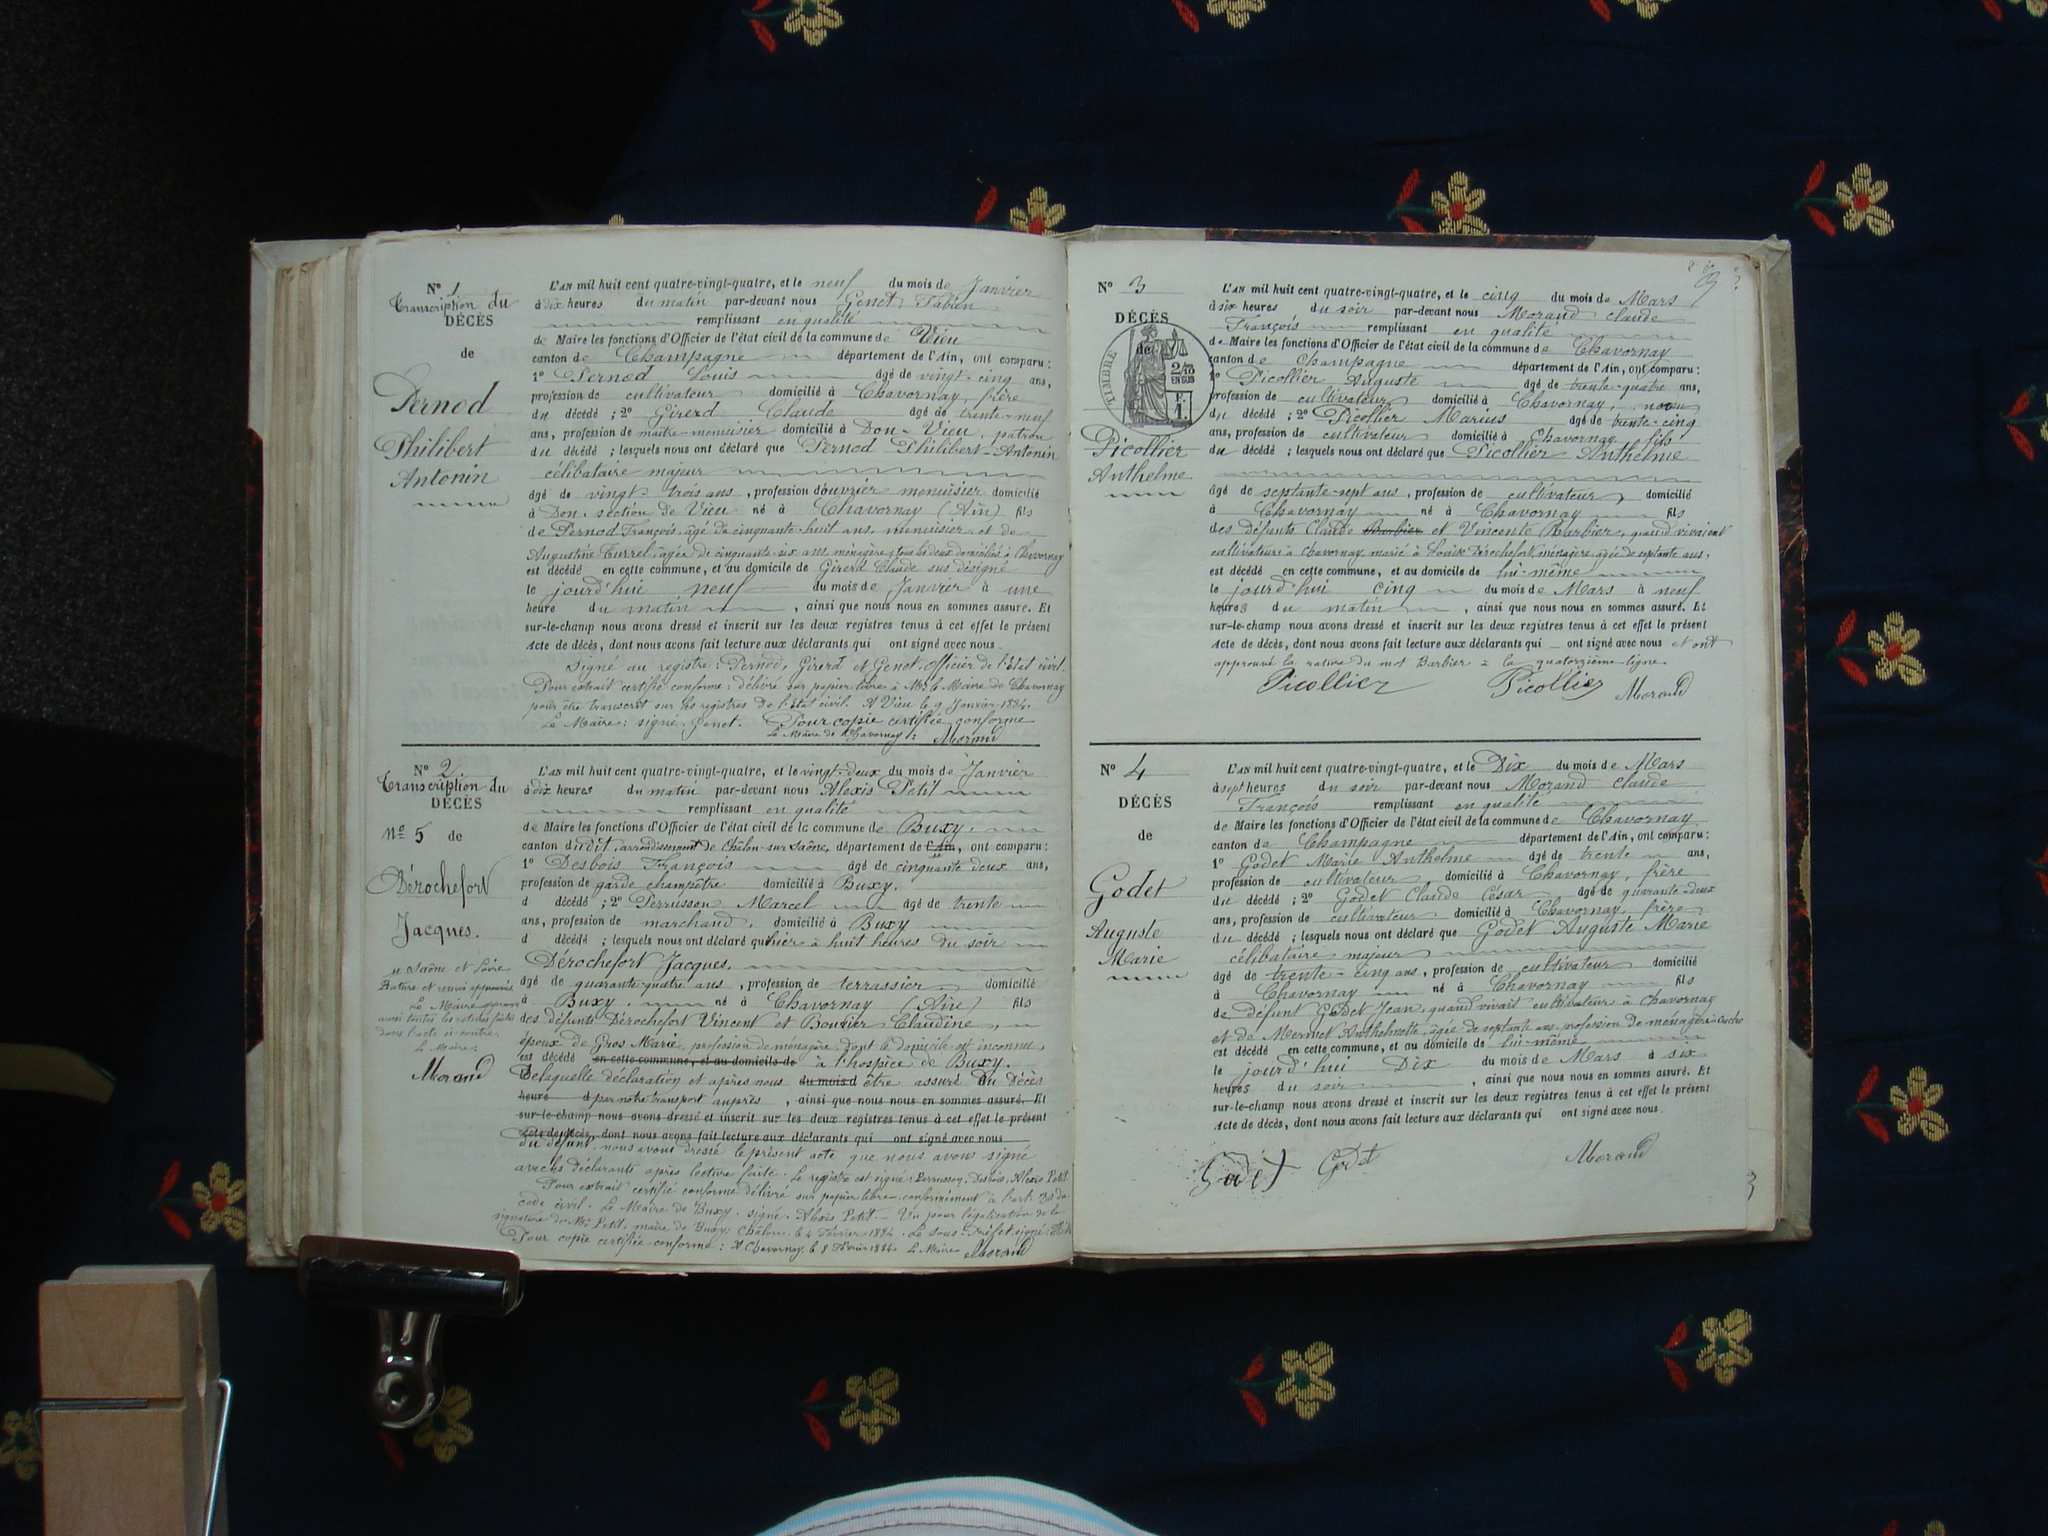 N° 1.
Transcription du
DÉCÈS
de
Pernod
Philibert
Antonin
L'AN mil huit cent quatre-vingt-quatre, et le neuf du mois de Janvier
à dix heures du matin par-devant nous Genet Fabien
remplissant en qualité
de Maire les fonctions d'Officier de l'état civil de la commune de Vieu
canton de Champagne département de l'Ain, ont comparu :
1° Pernod Louis âgé de vingt-cinq ans,
profession de cultivateur domicilié à Chavornay, frère
du décédé ; 2° Girerd Claude âgé de trente-neuf
ans, profession de maître-menuisier domicilié à Don-Vieu, patron
du décédé ; lesquels nous ont déclaré que Pernod Philibert-Antonin
célibataire majeur
âgé de vingt-trois ans, profession d'ouvrier menuisier domicilié
à Don-section de Vieu né à Chavornay (Ain) fils
de Pernod François, âgé de cinquante-huit ans, menuisier et de
Augustine Turrel, âgée de cinquante-six ans, ménagère, tous les deux domiciliés à Chavornay
est décédé en cette commune, et au domicile de Girerd Claude sus désigné
le jourd'hui neuf du mois de Janvier à une
heure du matin, ainsi que nous nous en sommes assuré. Et
sur-le-champ nous avons dressé et inscrit sur les deux registres tenus à cet effet le présent
Acte de décès, dont nous avons fait lecture aux déclarants qui ont signé avec nous.
Signé au registre : Pernod, Girerd et Genet, officier de l'état civil.
Pour extrait certifié conforme, délivré sur papier libre à Mr le Maire de Chavornay
pour être transcrit sur les registres de l'état civil. A Vieu le 9 Janvier 1884.
Le Maire : signé : Genet. Pour copie certifiée conforme
Le Maire de Chavornay : Morand
N° 2
Transcription du
DÉCÈS
N° 5 de
Dérochefort
Jacques.
Saône et Loire
Rature et renvoi approuvés
Le Maire approuve
aussi toutes les ratures faites
dans l'acte ci-contre
Le Maire :
Morand
L'AN mil huit cent quatre-vingt-quatre, et le vingt-deux du mois de Janvier
à dix heures du matin par-devant nous Alexis Petit
remplissant en qualité
de Maire les fonctions d'Officier de l'état civil de la commune de Buxy.
canton dudit, arrondissement de Châlon-sur-Saône, département de l'Ain, ont comparu :
1° Desbois François âgé de cinquante deux ans,
profession de garde champêtre domicilié à Buxy.
d décédé ; 2° Perrusson Marcel âgé de trente
ans, profession de marchand, domicilié à Buxy
d décédé ; lesquels nous ont déclaré qu'hier à huit heures du soir
Dérochefort Jacques.
âgé de quarante-quatre ans, profession de terrassier, domicilié
à Buxy. né à Chavornay (Ain) fils
des défunts Dérochefort Vincent et Bouvier Claudine,
époux de Gros Marie, profession de ménagère, dont le domicile est inconnu,
est décédé en cette commune, et au domicile de à l'hospice de Buxy.
De laquelle déclaration et après nous du mois d être assuré du Décès
heure d par notre transport auprès, ainsi que nous nous en sommes assuré. Et
sur-le-champ nous avons dressé et inscrit sur les deux registres tenus à cet effet le présent
Acte de décès, dont nous avons fait lecture aux déclarants qui ont signé avec nous
du défunt, nous avons dressé le présent acte que nous avons signé
avec les déclarants après lecture faite. Le registre est signé : Perrusson, Desbois, Alexis Petit
Pour extrait certifié conforme délivré sur papier libre conformément à l'art. 80 du
code civil. Le Maire de Buxy. signé : Alexis Petit. Vu pour légalisation de la
signature de Mr Petit, maire de Buxy. Châlon, le 4 Février 1884. Le Sous-Préfet signé :
Pour copie certifiée conforme : A Chavornay le 8 Février 1884. Le Maire Morand
N° 3
DÉCÈS
de
TIMBRE
2/10
EN SUS
F.
1.
Picollier
Anthelme
3
L'AN mil huit cent quatre-vingt-quatre, et le cinq du mois de Mars
à six heures du soir par-devant nous Morand Claude
François remplissant en qualité
de Maire les fonctions d'Officier de l'état civil de la commune de Chavornay
canton de Champagne département de l'Ain, ont comparu :
1° Picollier Auguste âgé de trente-quatre ans,
profession de cultivateur domicilié à Chavornay, neveu
du décédé ; 2° Picollier Marius âgé de trente-cinq
ans, profession de cultivateur domicilié à Chavornay, fils
du décédé ; lesquels nous ont déclaré que Picollier Anthelme
âgé de septante-sept ans, profession de cultivateur, domicilié
à Chavornay né à Chavornay fils
des défunts Claude Barbier et Vincente Barbier, quand vivaient
cultivateurs à Chavornay, marié à Louise Dérochefort, ménagère, âgée de septante ans,
est décédé en cette commune, et au domicile de lui-même
le jourd'hui cinq du mois de Mars à neuf
heures du matin, ainsi que nous nous en sommes assuré. Et
sur-le-champ nous avons dressé et inscrit sur les deux registres tenus à cet effet le présent
Acte de décès, dont nous avons fait lecture aux déclarants qui ont signé avec nous et ont
approuvé la rature du mot Barbier à la quatorzième ligne.
Picollier Picollier Morand
N° 4
DÉCÈS
de
Godet
Auguste
Marie
L'AN mil huit cent quatre-vingt-quatre, et le Dix du mois de Mars
à sept heures du soir par-devant nous Morand Claude
François remplissant en qualité
de Maire les fonctions d'Officier de l'état civil de la commune de Chavornay
canton de Champagne département de l'Ain, ont comparu :
1° Godet Marie Anthelme âgé de trente ans,
profession de cultivateur, domicilié à Chavornay, frère
du décédé ; 2° Godet Claude César âgé de quarante-deux
ans, profession de cultivateur domicilié à Chavornay, frère
du décédé ; lesquels nous ont déclaré que Godet Auguste Marie
célibataire majeur
âgé de trente-cinq ans, profession de cultivateur domicilié
à Chavornay né à Chavornay fils
de défunt Godet Jean, quand vivait cultivateur à Chavornay
et de Mermet Anthelmette, âgée de septante ans, profession de ménagère
est décédé en cette commune, et au domicile de lui-même
le jourd'hui Dix du mois de Mars à six
heures du soir, ainsi que nous nous en sommes assuré. Et
sur-le-champ nous avons dressé et inscrit sur les deux registres tenus à cet effet le présent
Acte de décès, dont nous avons fait lecture aux déclarants qui ont signé avec nous.
Godet Godet Morand
3